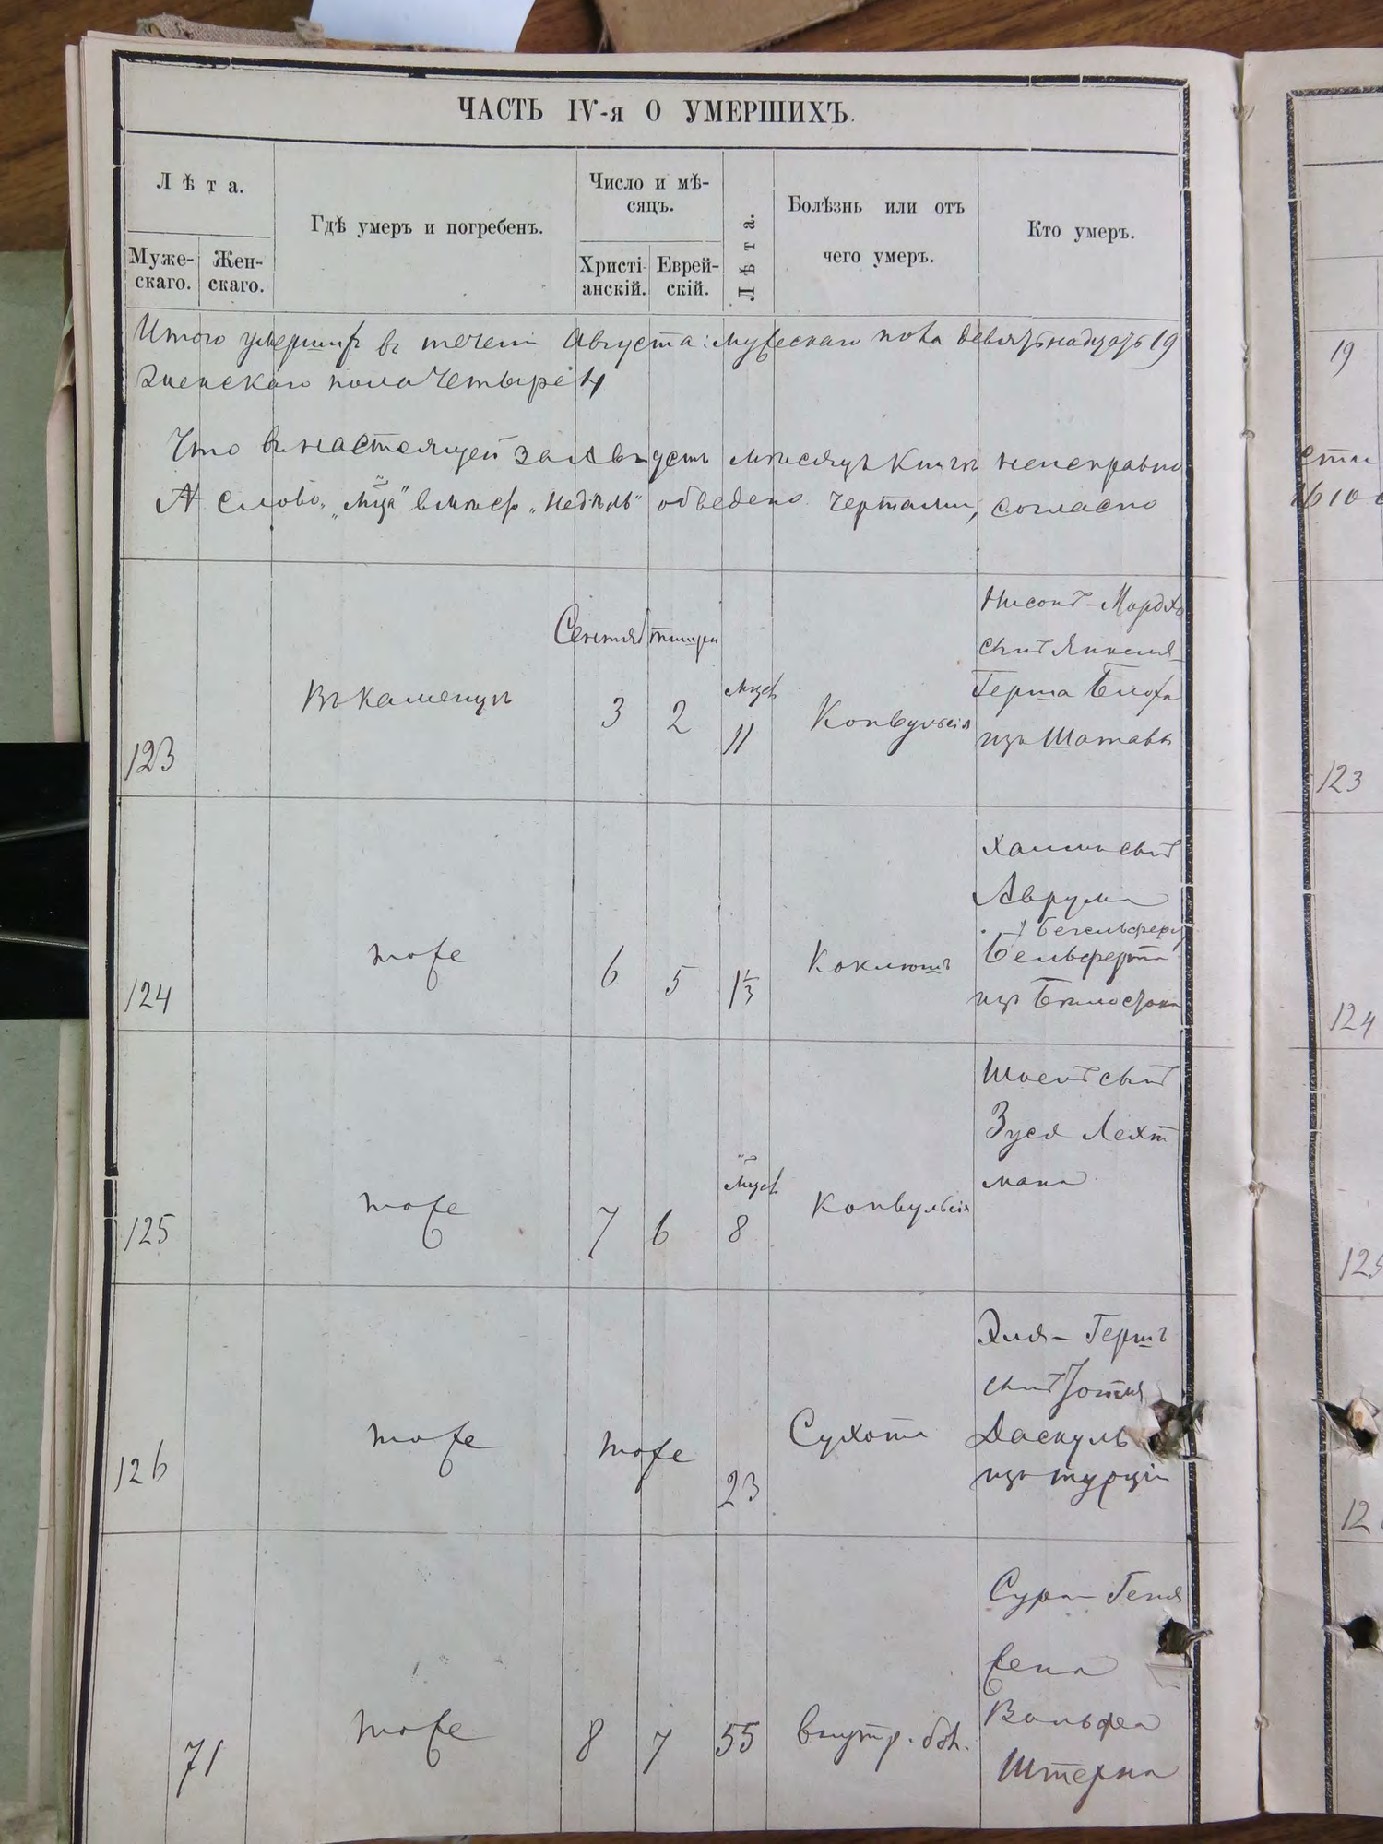 ЧАСТЬ IV-я О УМЕРШИХЪ.
Лѣта.
Муже-
скаго.
Жен-
скаго.
Гдѣ умеръ и погребенъ.
Число и мѣ-
сяцъ.
Христі-
анскій.
Еврей-
скій.
Лѣта.
Болѣзнь или отъ
чего умеръ.
Кто умеръ.
Итого умершихъ въ течені Августа: мужескаго пола девятьнадцать 19
женскаго пола Четыре 4
Что въ настоящей за Августъ мѣсяцъ Книгѣ неисправно
А слово „мця" вмѣсто „недѣль" обведено чертами, согласно
Сентяб тишри
123 Въ Каменцѣ 3 2 мцев 11 Конвульсія
Нисонъ-Мордхо
сынъ Янкеля-
Герша Блоха
изъ Шатавы
124 тоже 6 5 1⅓ Коклюшъ
Хаимъ сынъ
Аврума
Бельферта
изъ
125 тоже 7 6 мцев 8 Конвульсія
сынъ
Зуся Лехт
мана
126 тоже тоже 23 Сухоти
Эля-Гершъ
сынъ
Даскуль
изъ турціи
71 тоже 8 7 55 внутр. бол.
Сура-Геня
жена
Вольфа
Штерна
19
123
124
125
12